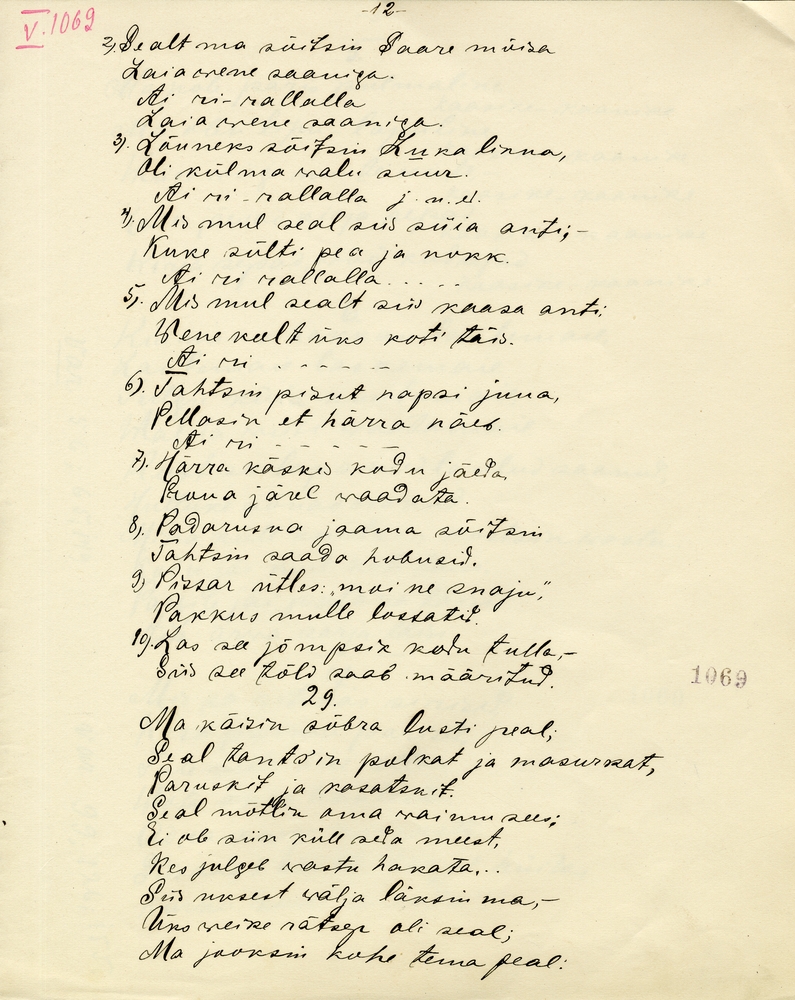 -12-
V.1069
2). Sealt ma sõitsin Saare mõisa
Laia wene saaniga.
Ai ri-rallalla
Laia wene saaniga.
3). Lõuneks sõitsin Luka linna,
Oli külma walu suur.
Ai ri-rallalla j. n. e.
4). Mis mul seal siis süia anti;-
Kuke sülti pea ja nokk.
Ai ri rallalla.....
5). Mis mul sealt siis kaasa anti;
Wene keelt üks koti täis.
Ai ri - - - - -
6). Tahtsin pisut napsi juua,
Pellasin et härra näeb.
Ai ri - - - - - -
7). Härra käskis kodu jäeda,
Proua järel waadata.
8). Padarusna jaama sõitsin
Tahtsin saada hobusid.
9) Pissar ütles: „moi ne snaju",
Pakkus mulle lossatid.
10). Las see jõmpsik kodu tulla,-
Siis see tõld saab määritud.
1069
29.
Ma käisin sõbra lusti peal;
Seal tantsin polkat ja masurkat,
Paruskit ja kasatskit.
Seal mõtlin oma waimu sees;
Ei ole siin küll seda meest,
Kes julgeb wastu hakata...
Siis uksest wälja läksin ma,-
Üks weike rätsep oli seal;
Ma jooksin kohe tema peal: